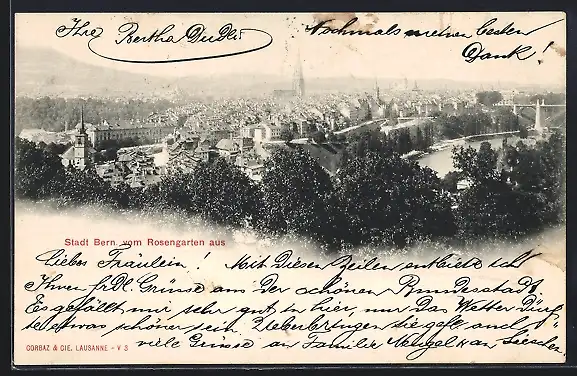 Ihre Bertha Dudli
Nochmals meinen besten
Dank!
Stadt Bern vom Rosengarten aus
Liebes Fräulein! Mit Diesen Zeilen entbiete ich
Ihnen frdl. Grüsse aus der schönen Bundesstadt.
Es gefällt mir sehr gut in hier, nur das Wetter dürf
te etwas schöner sein
viele Grüsse an Familie
CORBAZ & CIE. LAUSANNE - V 3